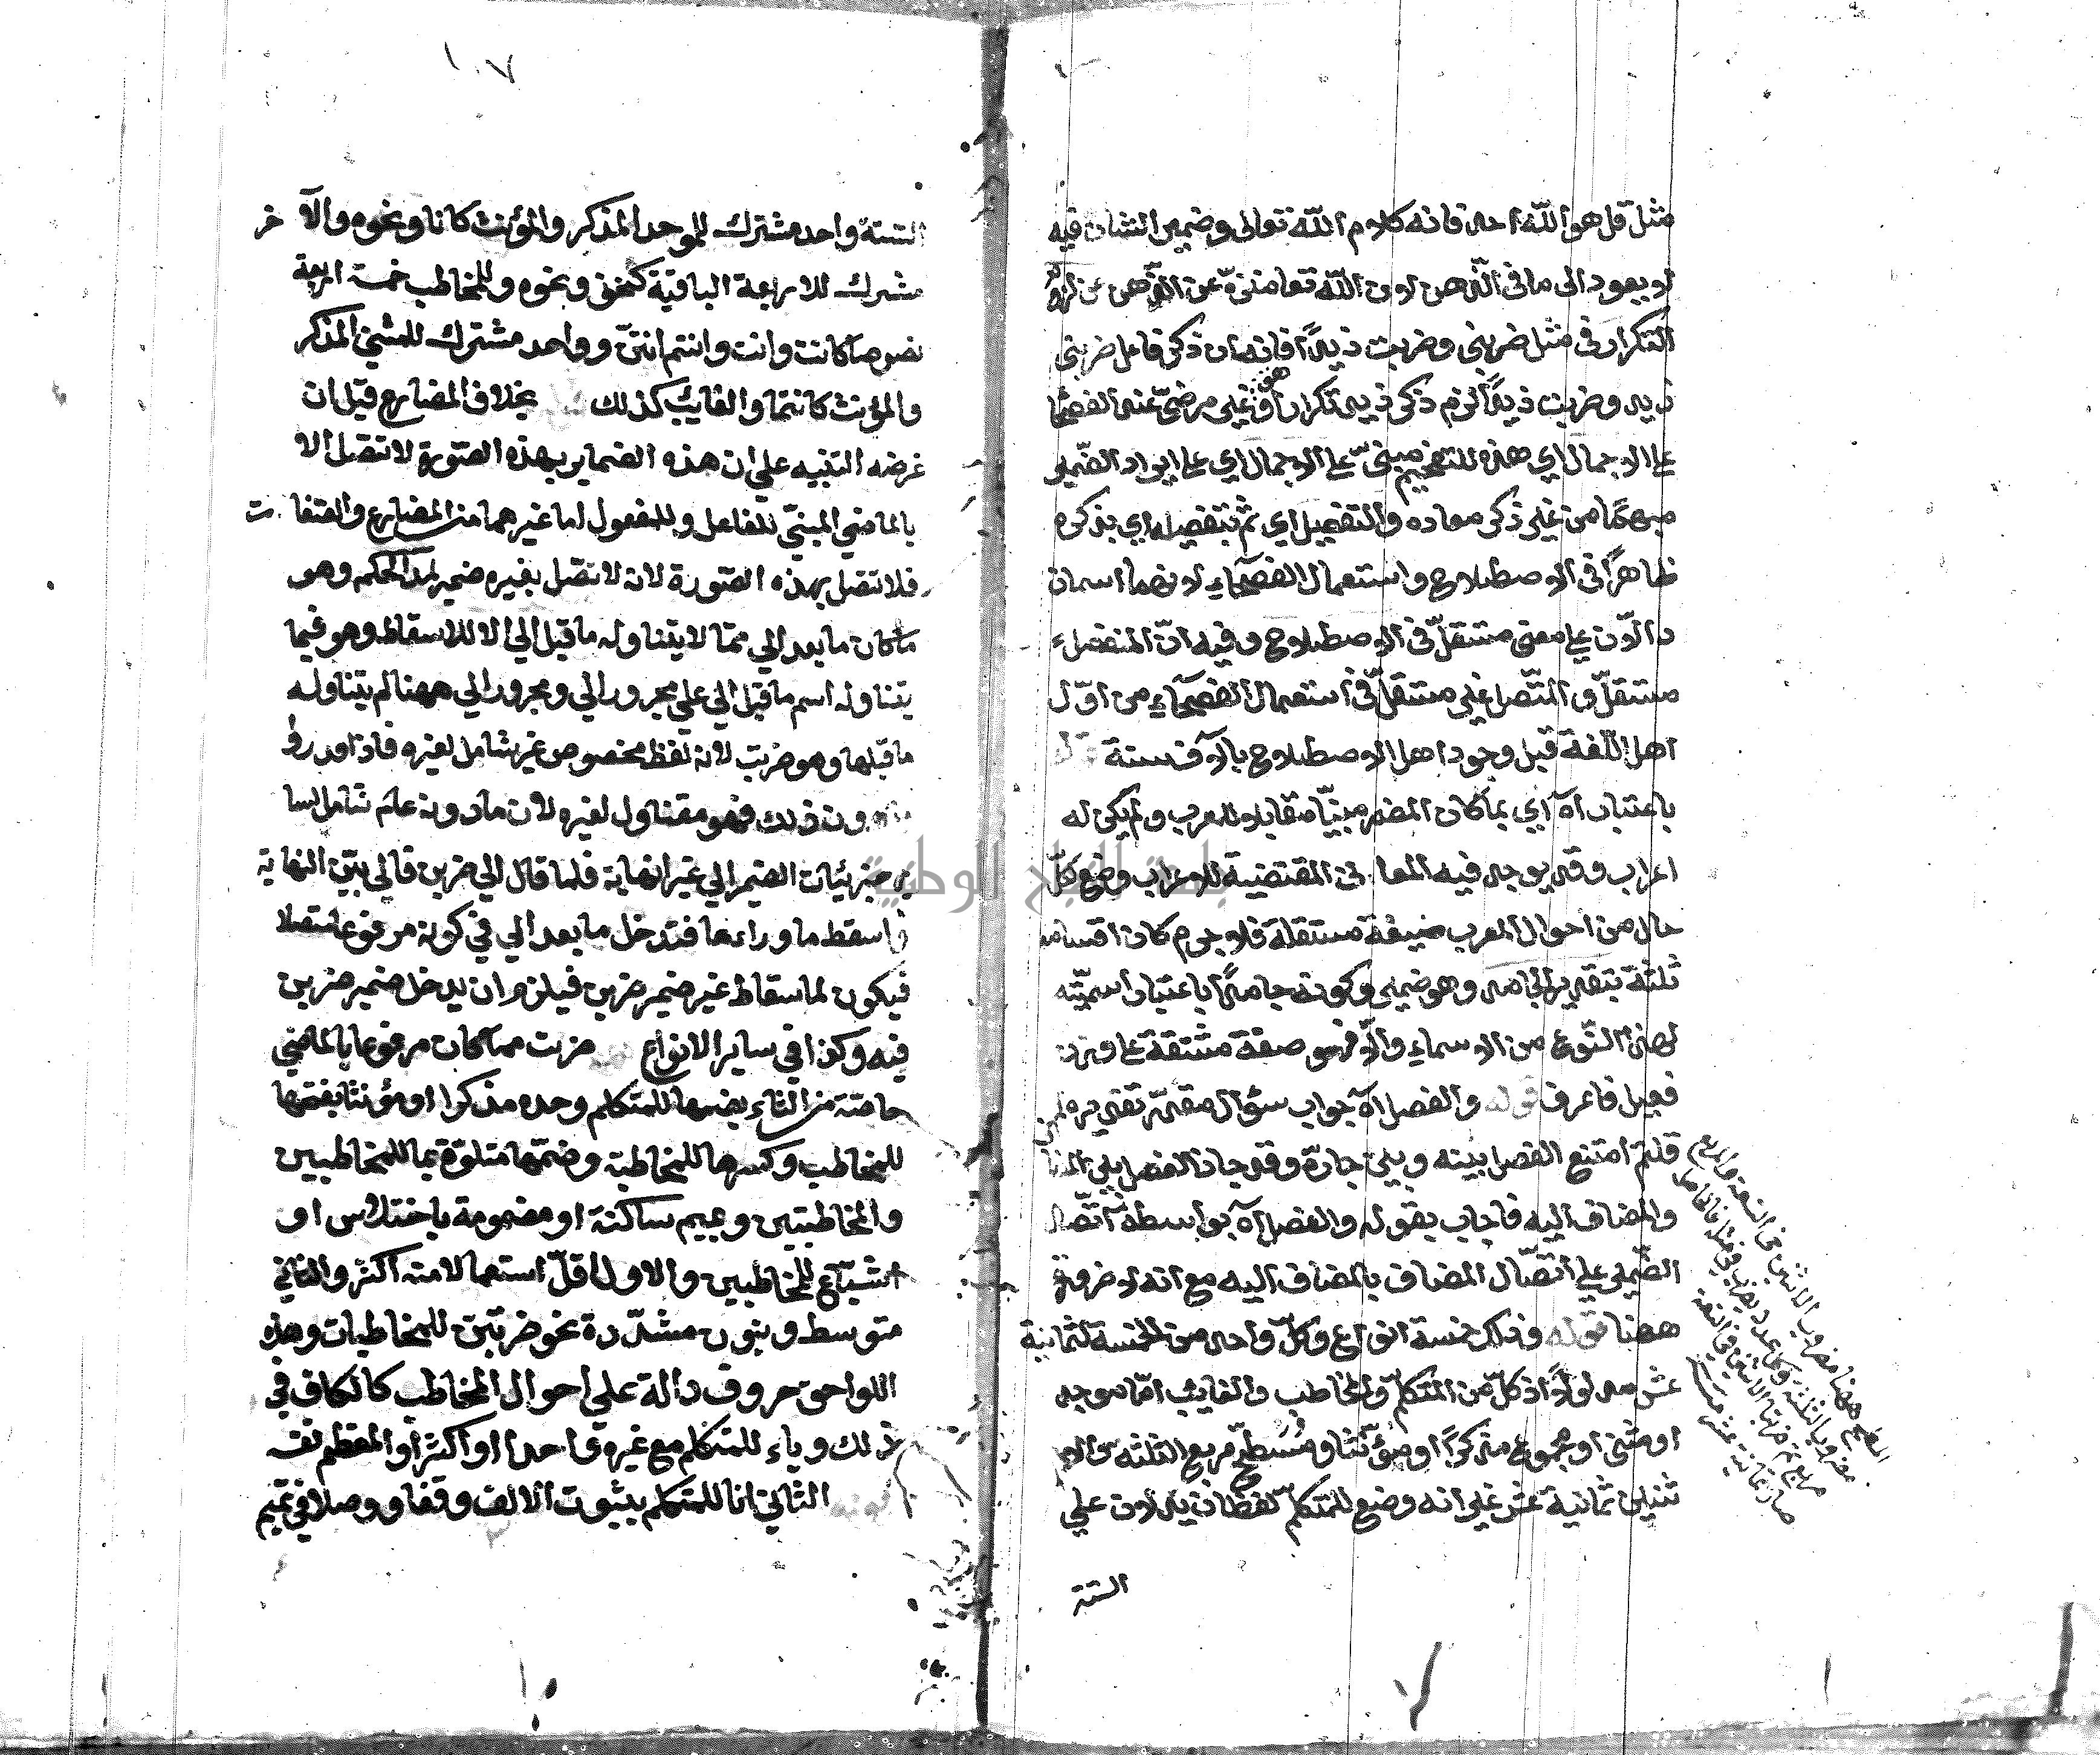 مثل قل هو الله احد فانه كلام الله تعالى وضمير الشان فيه
لا يعود الى ما فى الذهن لان الله تعا منزه عن الذهن عن لزوم
التكرار فى مثل ضربنى وضربت زيدا فانه ان ذكر فاعل ضربنى
زيد وضربت زيدا لزم ذكر زيد تكرارا هو غير مرضى عند الفصحا
على الاجمال اي هذه للتفخيم مبنى على الاجمال اي على ايراد الضمير
مبهما من غير ذكر معاده والتفصيل اي ثم بتفصيله اي بذكره
ظاهرا فى الاصطلاح واستعمال الفصحاء لانهما اسمان
دالان على معنى مستقل فى الاصطلاح وفيه ان المنفصل
مستقل والمتصل غير مستقل فى استعمال الفصحاء من اول
اهل اللغة قبل وجود اهل الاصطلاح بالآف سنة
باعتبار اه اي لما كان المضمر مبنيا مقابلا للمعرب ولم يكن له
اعراب وقد يوجد فيه المعانى المقتضية للاعراب وضع كل
حال من احوال المعرب صيغة مستقلة فلا جرم كان اقسامه
ثلثة بتقدير الجامد وهو ضمير وكونه جامدا باعتبار اسميته
لهذا النوع من الاسماء والا فهو صفة مشتقة على وزن
فعيل فاعرف قوله والفصل اه جواب سؤال مقدر تقديره لم
قلتم امتنع الفصل بينه وبين جاره وقد جاز الفصل بين المضاف
والمضاف اليه فاجاب بقوله والفصل اه بواسطة اتصال
الضمير على اتصال المضاف بالمضاف اليه مع انه لا ضرورة
ههنا قوله فذلك خمسة انواع وكل واحد من الخمسة لثمانية
عشر مدلولا اذ كل من المتكلم والمخاطب والغايب اما موحد
او مثنى او مجموع مذكرا او مؤنثا ومسطح مربع الثلثة فى الا
ثنين ثمانية عشر غير انه وضع للمتكلم لفظان يدلان على
الستة
١٠٧
الستة واحد مشترك للموحد المذكر والمؤنث كانا ونحوه والآخر
مشترك للاربعة الباقية كنحن ونحوه وللمخاطب خمسة اربعة
نصوصا كانت وانت وانتم انتن وواحد مشترك للمثنى المذكر
والمؤنث كانتما والغايب كذلك بخلاف المضارع قيل ان
غرضه التنبيه على ان هذه الضماير بهذه الصورة لا تتصل الا
بالماضي المبني للفاعل وللمفعول اما غيرهما من المضارع والصفات
فلا تتصل بهذه الصورة لان لا تتصل بغيره ضمير لهذا الحكم وهو
ما كان ما بعد الي مما لا يتناوله ما قبل الي الا للاسقاط وهو فيما
يتناوله اسم ما قبل الي علي مجرور الي ومجرور الي ههنا لم يتناوله
ما قبلها وهو ضربت لانه لفظ مخصوص غير شامل لغيره فاذا اوردوا
دون ذلك فهو متناول لغيره لان مادونه عام شامل لسا
ير جزئيات الضمير الي غير انهاية فلما قال الي ضربن قالي بين النهاية
فاسقط ما وراءها فتدخل ما بعد الي في كونه مرفوعا متصلا
فيكون لما سقاط غير ضمير ضربن فيلزم ان يدخل ضمير ضربن
فيه وكذا في ساير الانواع ضربت مما كان مرفوعا بالماضي
خاصة من التاء بضمها للمتكلم وحده مذكرا او مؤنثا بفتحها
للمخاطب وكسرها للمخاطبة وضمها متلوة بما للمخاطبين
والمخاطبتين وبميم ساكنة او مضمومة باختلاس او
اشباع للمخاطبين والاول اقل استعمالا منه اكثر والثاني
متوسط وبنون مشددة نحو ضربتن للمخاطبات وهذه
اللواحق حروف دالة علي احوال المخاطب كالكاف في
ذلك وياء للمتكلم مع غيره واحدا او اكثر او المعظم نفسه
قوله الثاني انا للمتكلم بثبوت الالف وقفا ووصلا في تميم